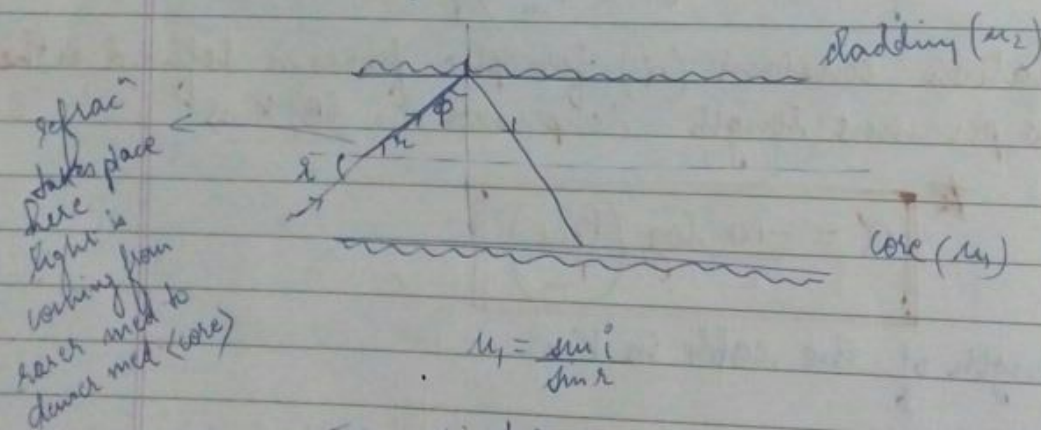 cladding (μ2)
refracⁿ
takes place
here
light is
coming from
rarer med to
denser med (core)
i
r
φ
core (μ1)
μ1 = sin i / sin r